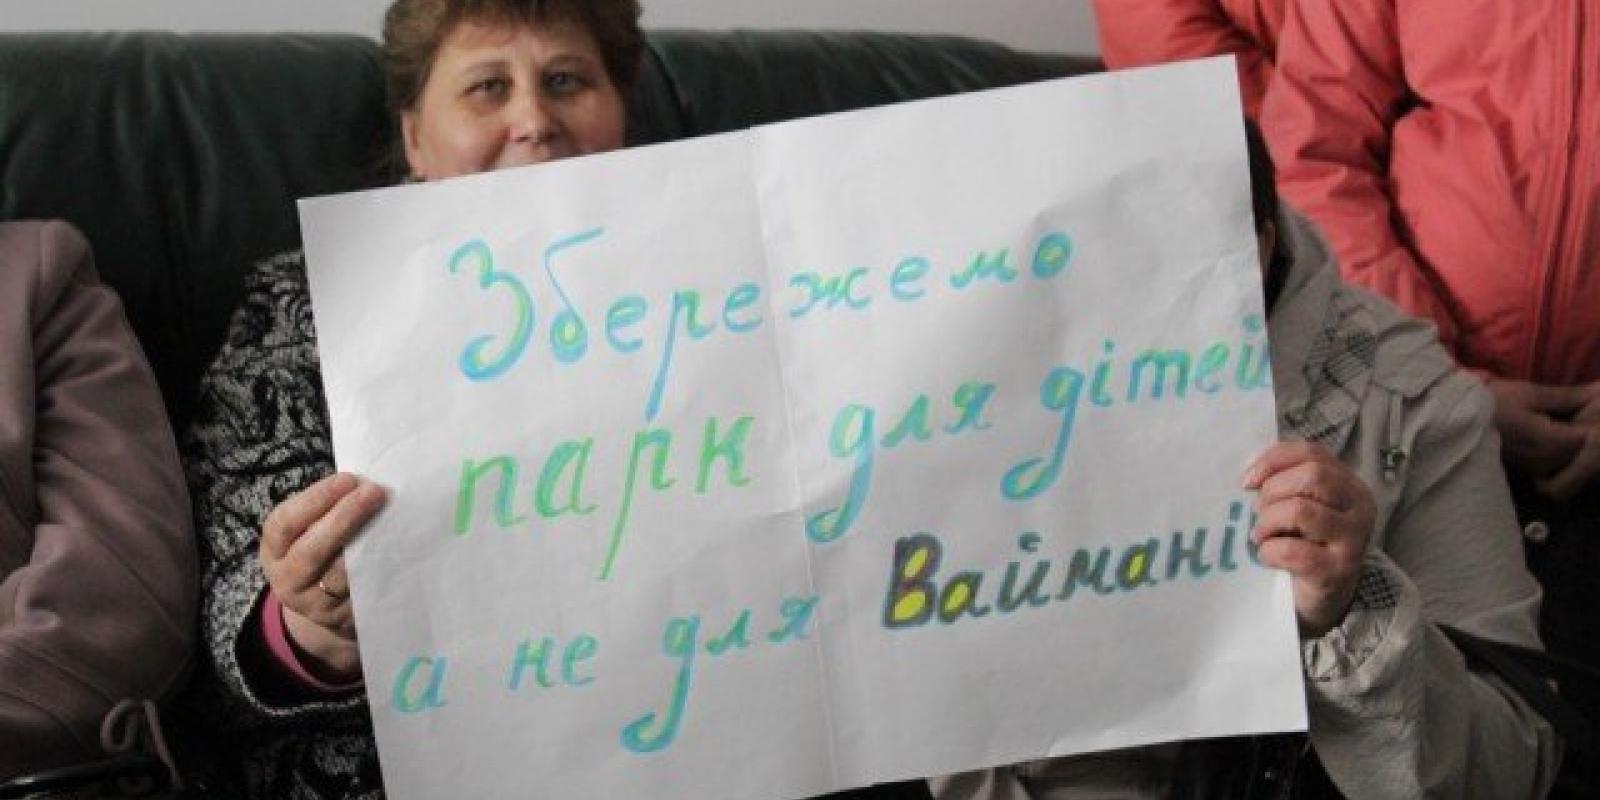 Збережемо
парк для дітей
а не для Вайманів